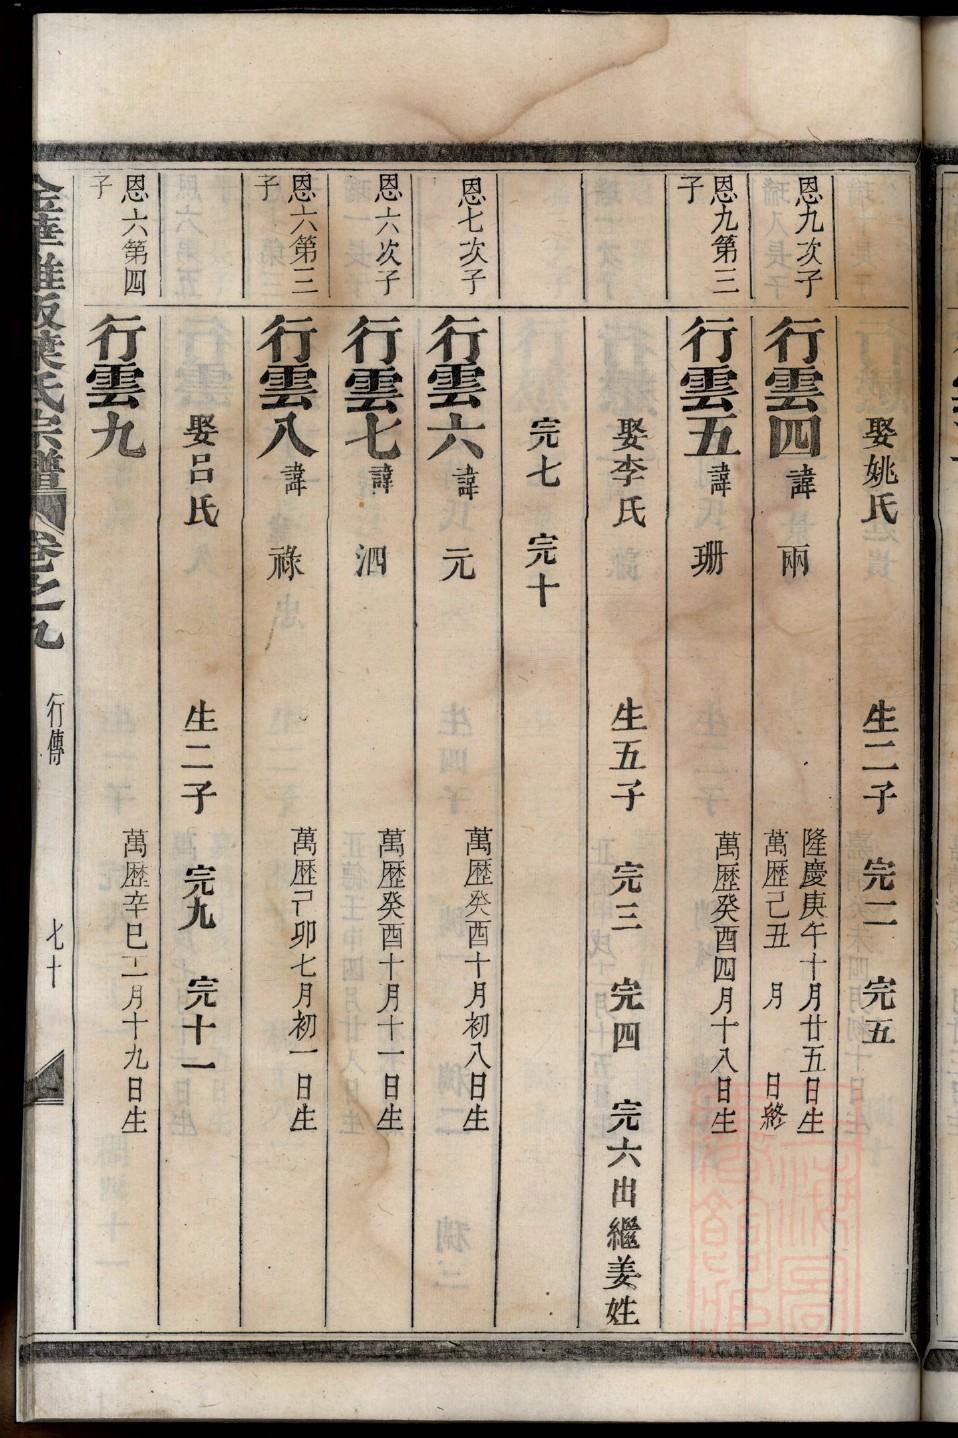 娶姚氏 生二子 完二 完五
恩九次子
行雲四 諱 兩 隆慶庚午十月廿五日生
萬歷己丑 月 日終
恩九第三子
行雲五 諱 珊 萬歷癸酉四月十八日生
娶李氏 生五子 完三 完四 完六出繼姜姓
完七 完十
恩七次子
行雲六 諱 元 萬歷癸酉十月初八日生
恩六次子
行雲七 諱 泗 萬歷癸酉十月十一日生
恩六第三子
行雲八 諱 祿 萬歷己卯七月初一日生
娶呂氏 生二子 完九 完十一
恩六第四子
行雲九 萬歷辛巳二月十九日生
葉氏宗譜 卷之九 行傳 七十